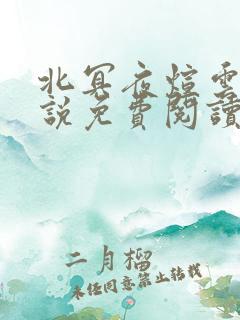 北冥夜煊雲
說免費閱讀
二月榴
未经同意禁止转载